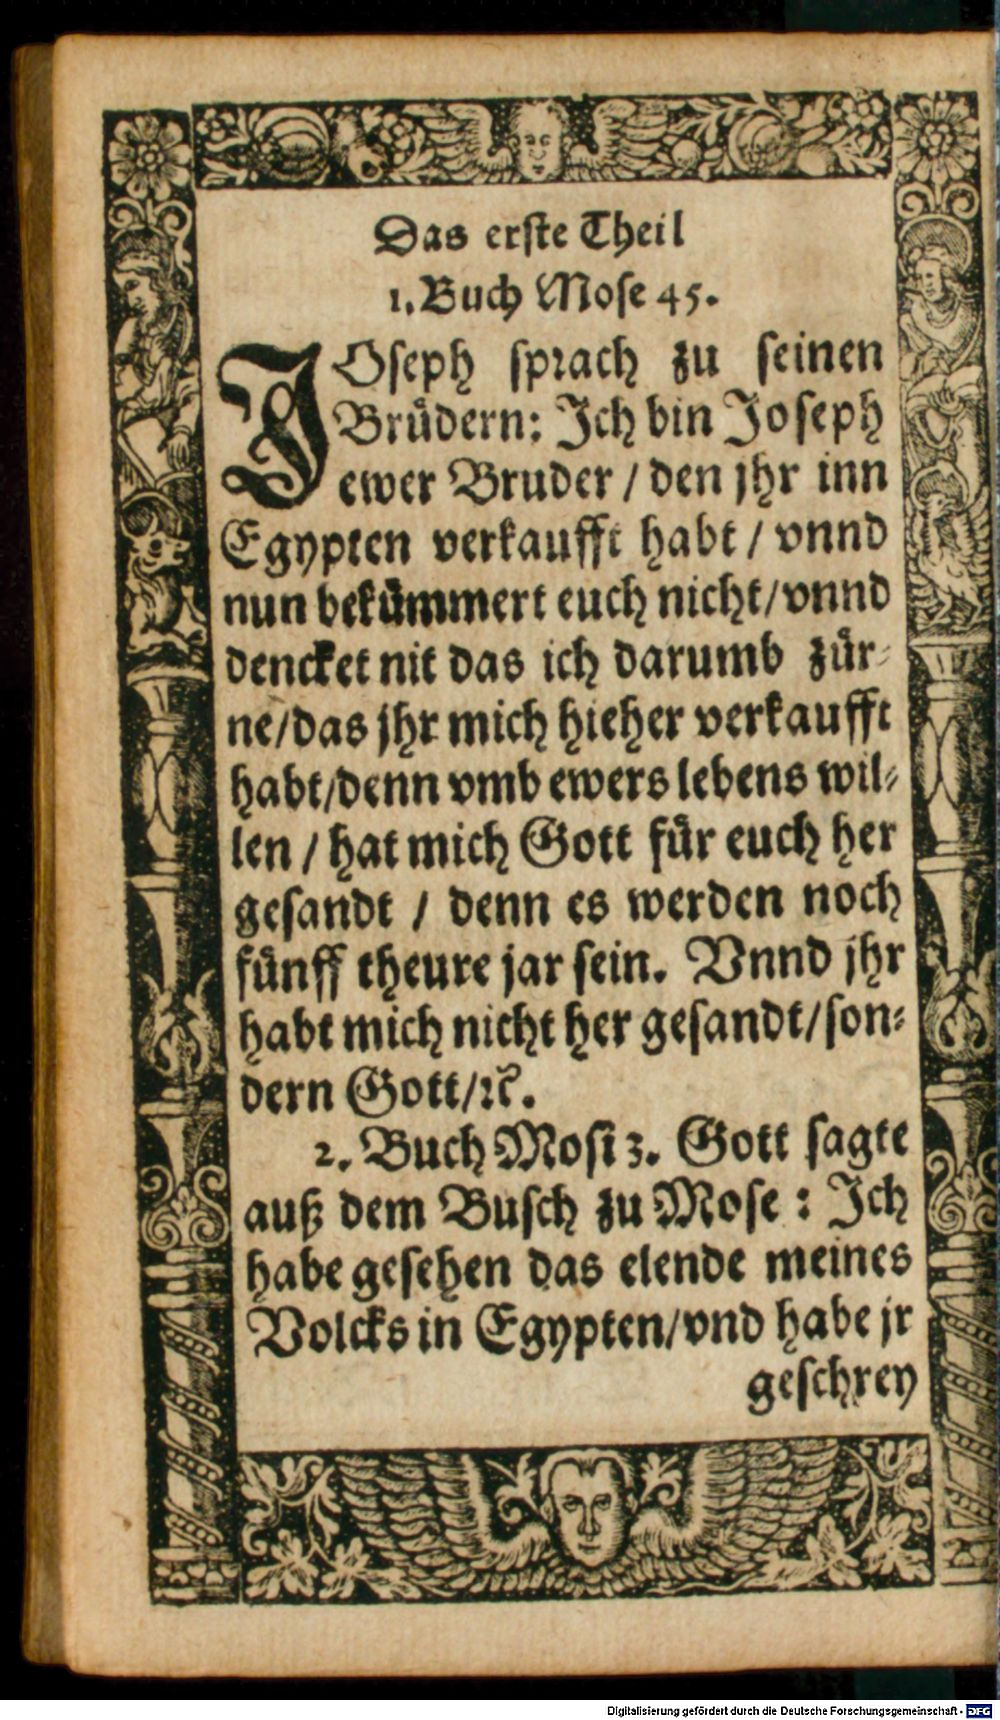 Das erſte Theil
1. Buch Moſe 45.
JOſeph ſprach zu ſeinen
Bruͤdern: Ich bin Joſeph
ewer Bruder / den jhr inn
Egypten verkaufft habt / vnnd
nun bekuͤmmert euch nicht / vnnd
dencket nit das ich darumb zuͤr⸗
ne / das jhr mich hieher verkaufft
habt / denn vmb ewers lebens wil⸗
len / hat mich Gott fuͤr euch her
geſandt / denn es werden noch
fuͤnff theure jar ſein. Vnnd jhr
habt mich nicht her geſandt / ſon⸗
dern Gott / ꝛc̃.
2. Buch Moſi 3. Gott ſagte
auß dem Buſch zu Moſe : Ich
habe geſehen das elende meines
Volcks in Egypten / vnd habe jr
geſchrey
Digitalisierung gefördert durch die Deutsche Forschungsgemeinschaft - DFG